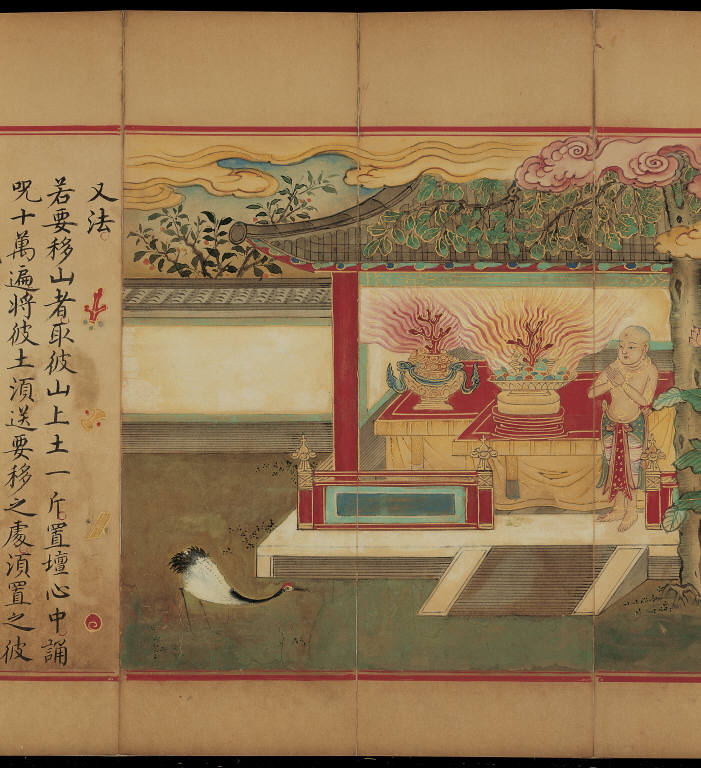 又法
若要移山者取彼山上土一斤置壇心中誦
呪十萬遍將彼土湏送要移之處湏置之彼